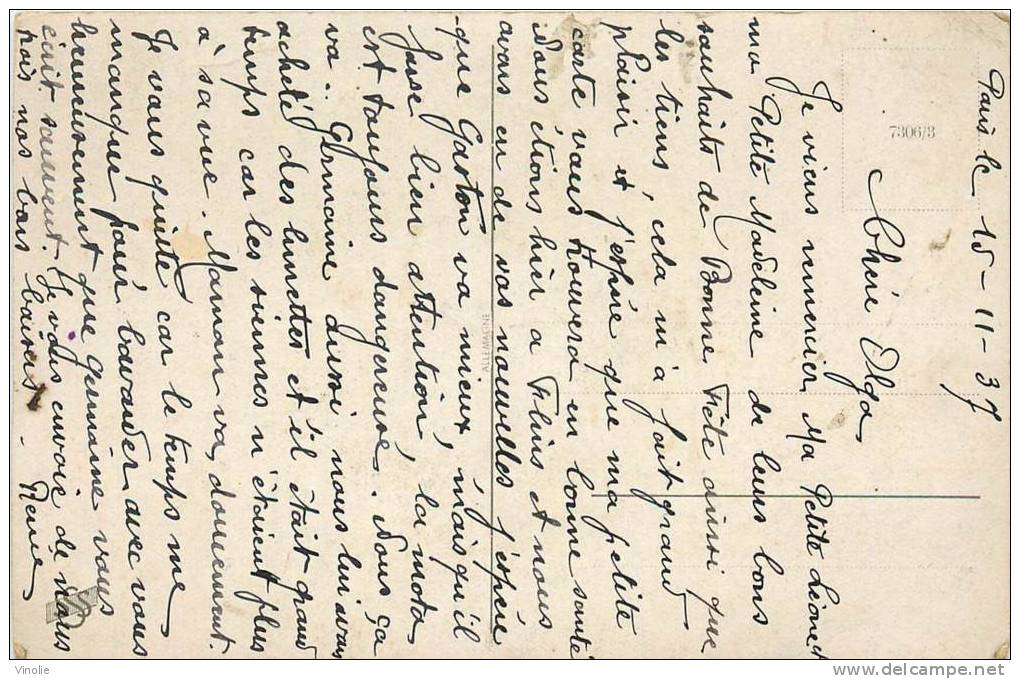 Paris le 15-11-37
Chère Olga,
Je viens remercier, Ma Petite Léone et
ma Petite Madeleine de leurs bons
souhaits de Bonne Fête ainsi que
les tiens, cela m'a fait grand
plaisir et j'espère que ma petite
carte vous trouvera en bonne santé
nous étions hier a Flins et nous
avons eu de vos nouvelles j'espère
que Gaston va mieux, mais qu'il
fasse bien attention, la moto
est toujours dangereuse. Nous ça
va.. Germaine aussi nous lui avons
acheté des lunettes et il était grand
temps car les siennes n'étaient plus
à sa vue. Maman va, doucement.
Je vous quitte car le temps me
manque pour bavarder avec vous
heureusement que Germaine vous
écrit souvent. Je vous envoie de nous
trois nos bons baisers -
Renée
7306/3
ALLEMAGNE
Vinolie
www.delcampe.net